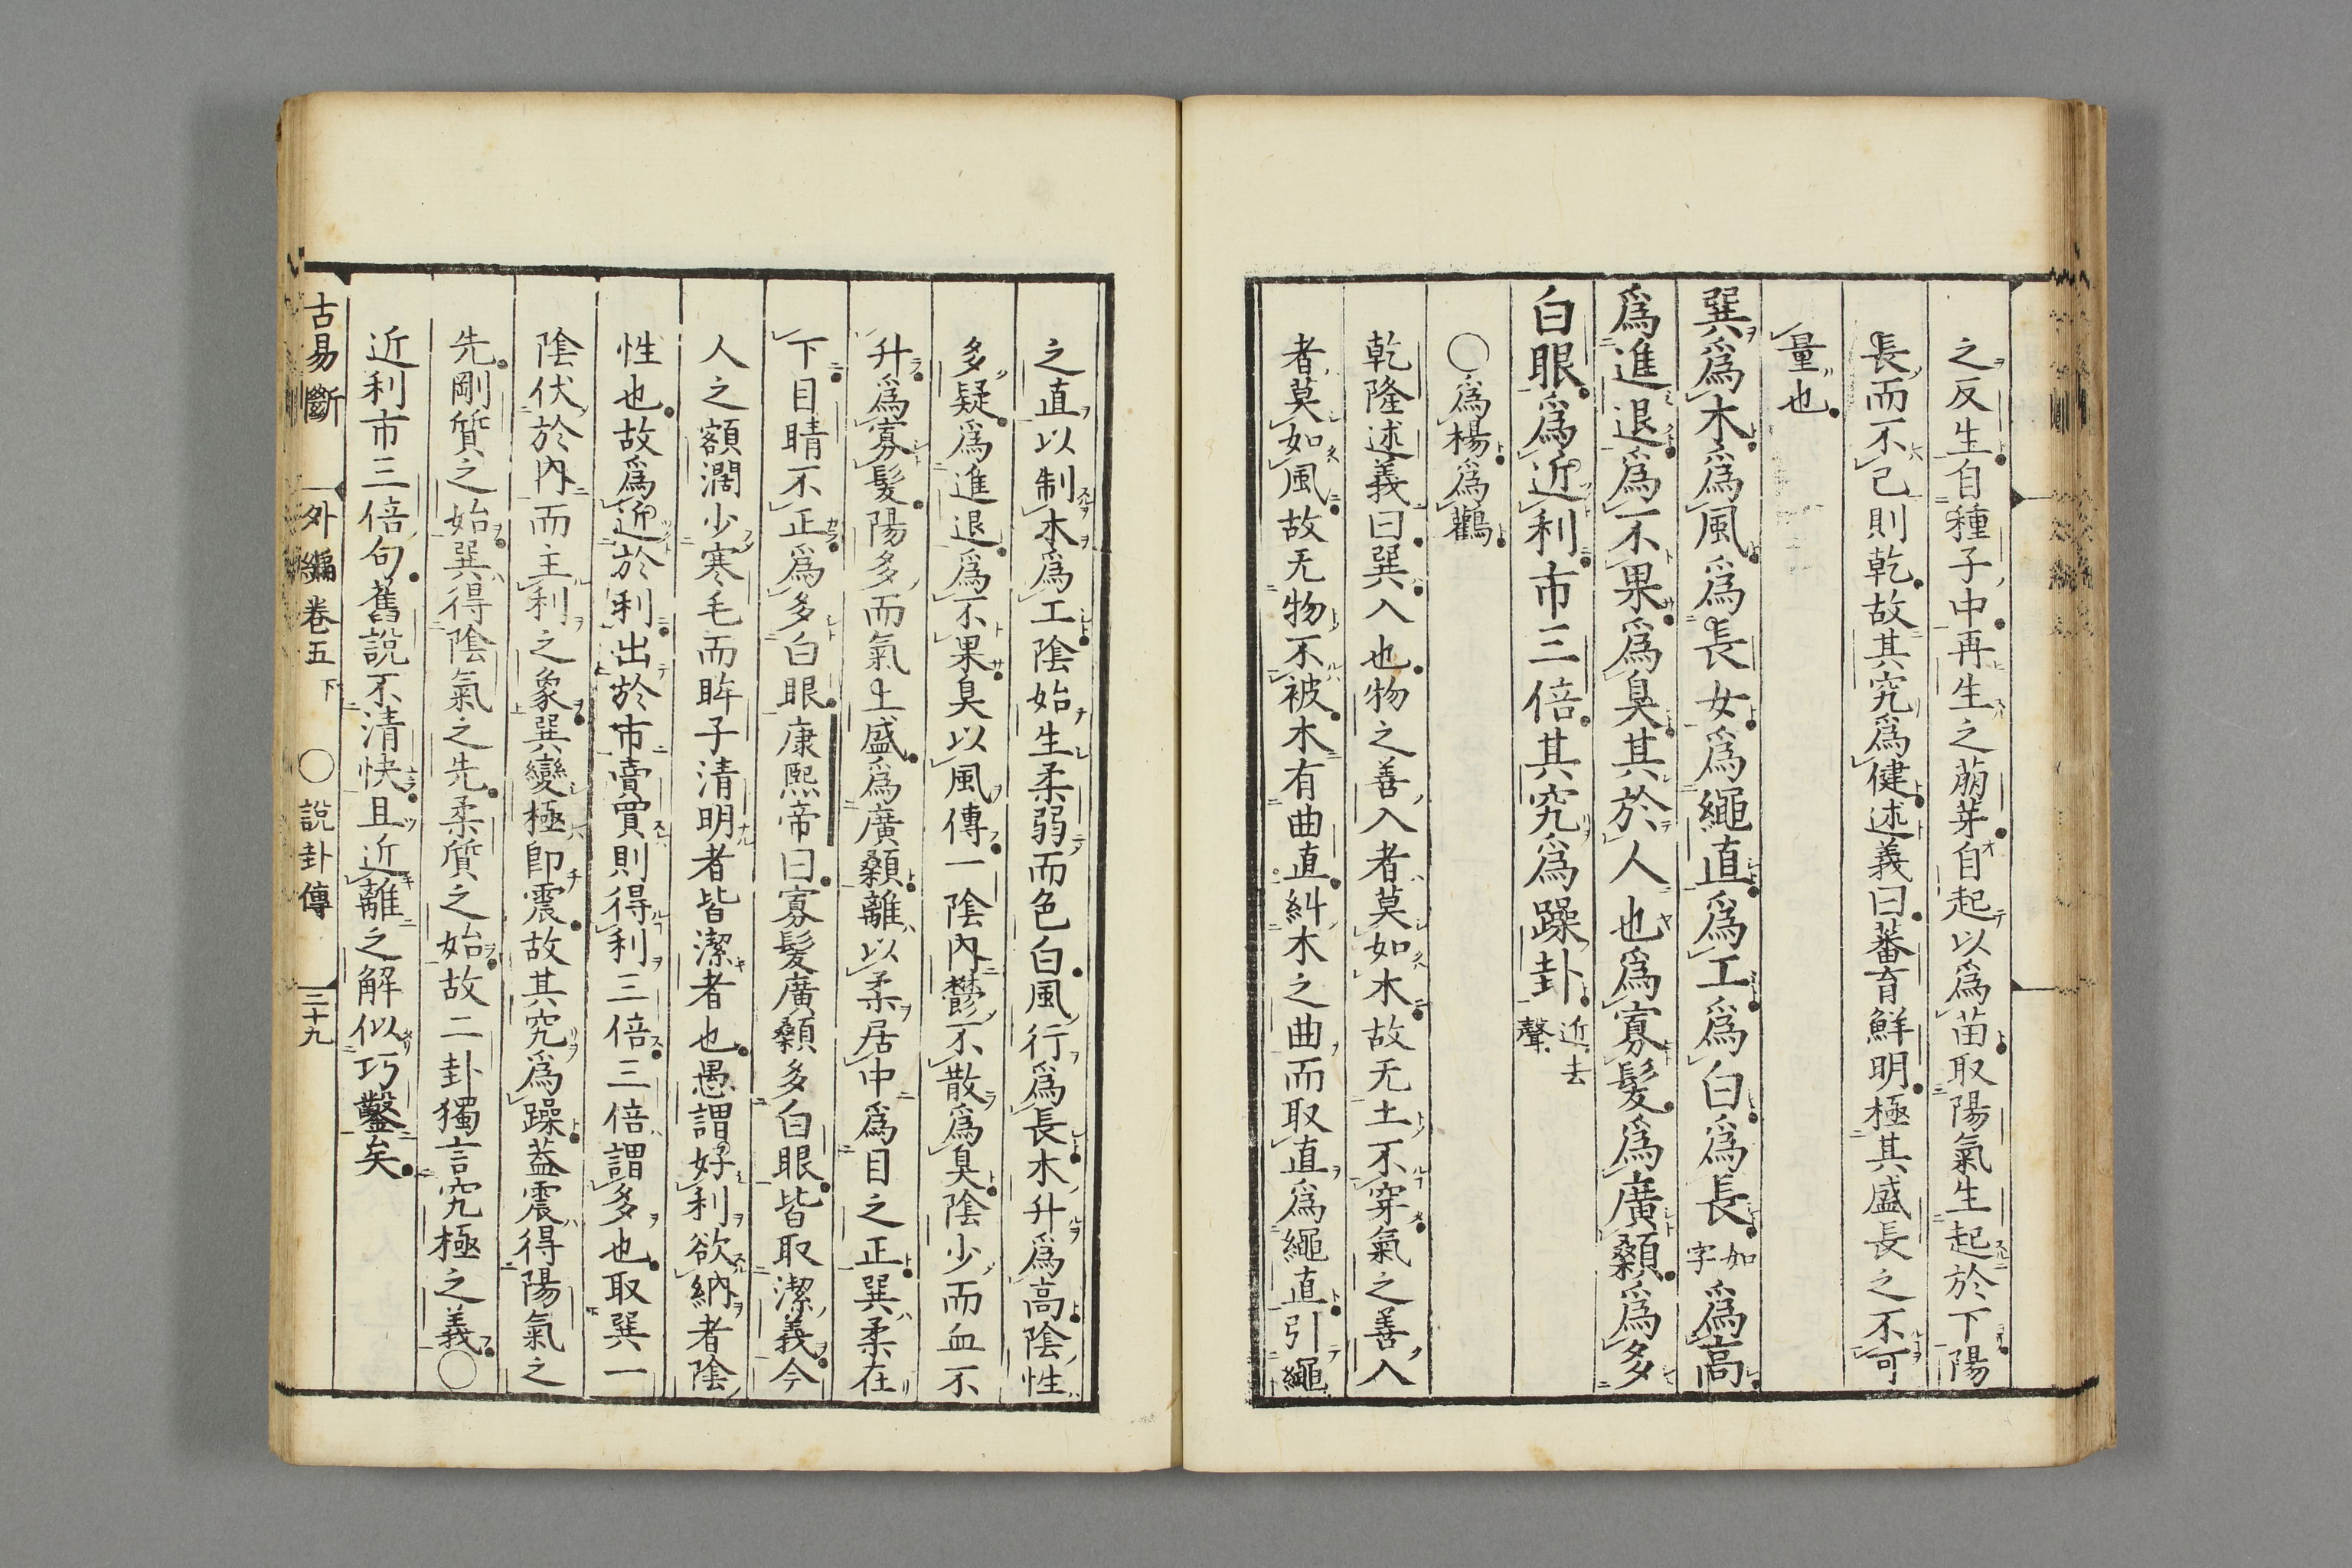 之反生自種子中再生之萠芽自起以爲苗取陽氣生起於下陽
長而不已則乾故其究爲健述義曰蕃育鮮明極其盛長之不可
量也
巽爲木爲風爲長女爲繩直爲工爲白爲長如字爲高
爲進退爲不果爲臭其於人也爲寡髮爲廣顙爲多
白眼爲近利市三倍其究爲躁卦近去聲
○爲楊爲鸛
乾隆述義曰巽入也物之善入者莫如木故无土不穿氣之善入
者莫如風故无物不被木有曲直糾木之曲而取直爲繩直引繩
之直以制木爲工陰始生柔弱而色白風行爲長木升爲高陰性
多疑爲進退爲不果臭以風傳一陰內鬱不散爲臭陰少而血不
升爲寡髮陽多而氣上盛爲廣顙離以柔居中爲目之正巽柔在
下目睛不正爲多白眼康熙帝曰寡髮廣顙多白眼皆取潔義今
人之額濶少寒毛而眸子清明者皆潔者也愚謂好利欲納者陰
性也故爲近於利出於市賣買則得利三倍三倍謂多也取巽一
陰伏於內而主利之象巽變極即震故其究爲躁蓋震得陽氣之
先剛質之始巽得陰氣之先柔質之始故二卦獨言究極之義○
近利市三倍句舊說不清快且近離之解似巧鑿矣
古易斷 外編卷五下 ○說卦傳 三十九